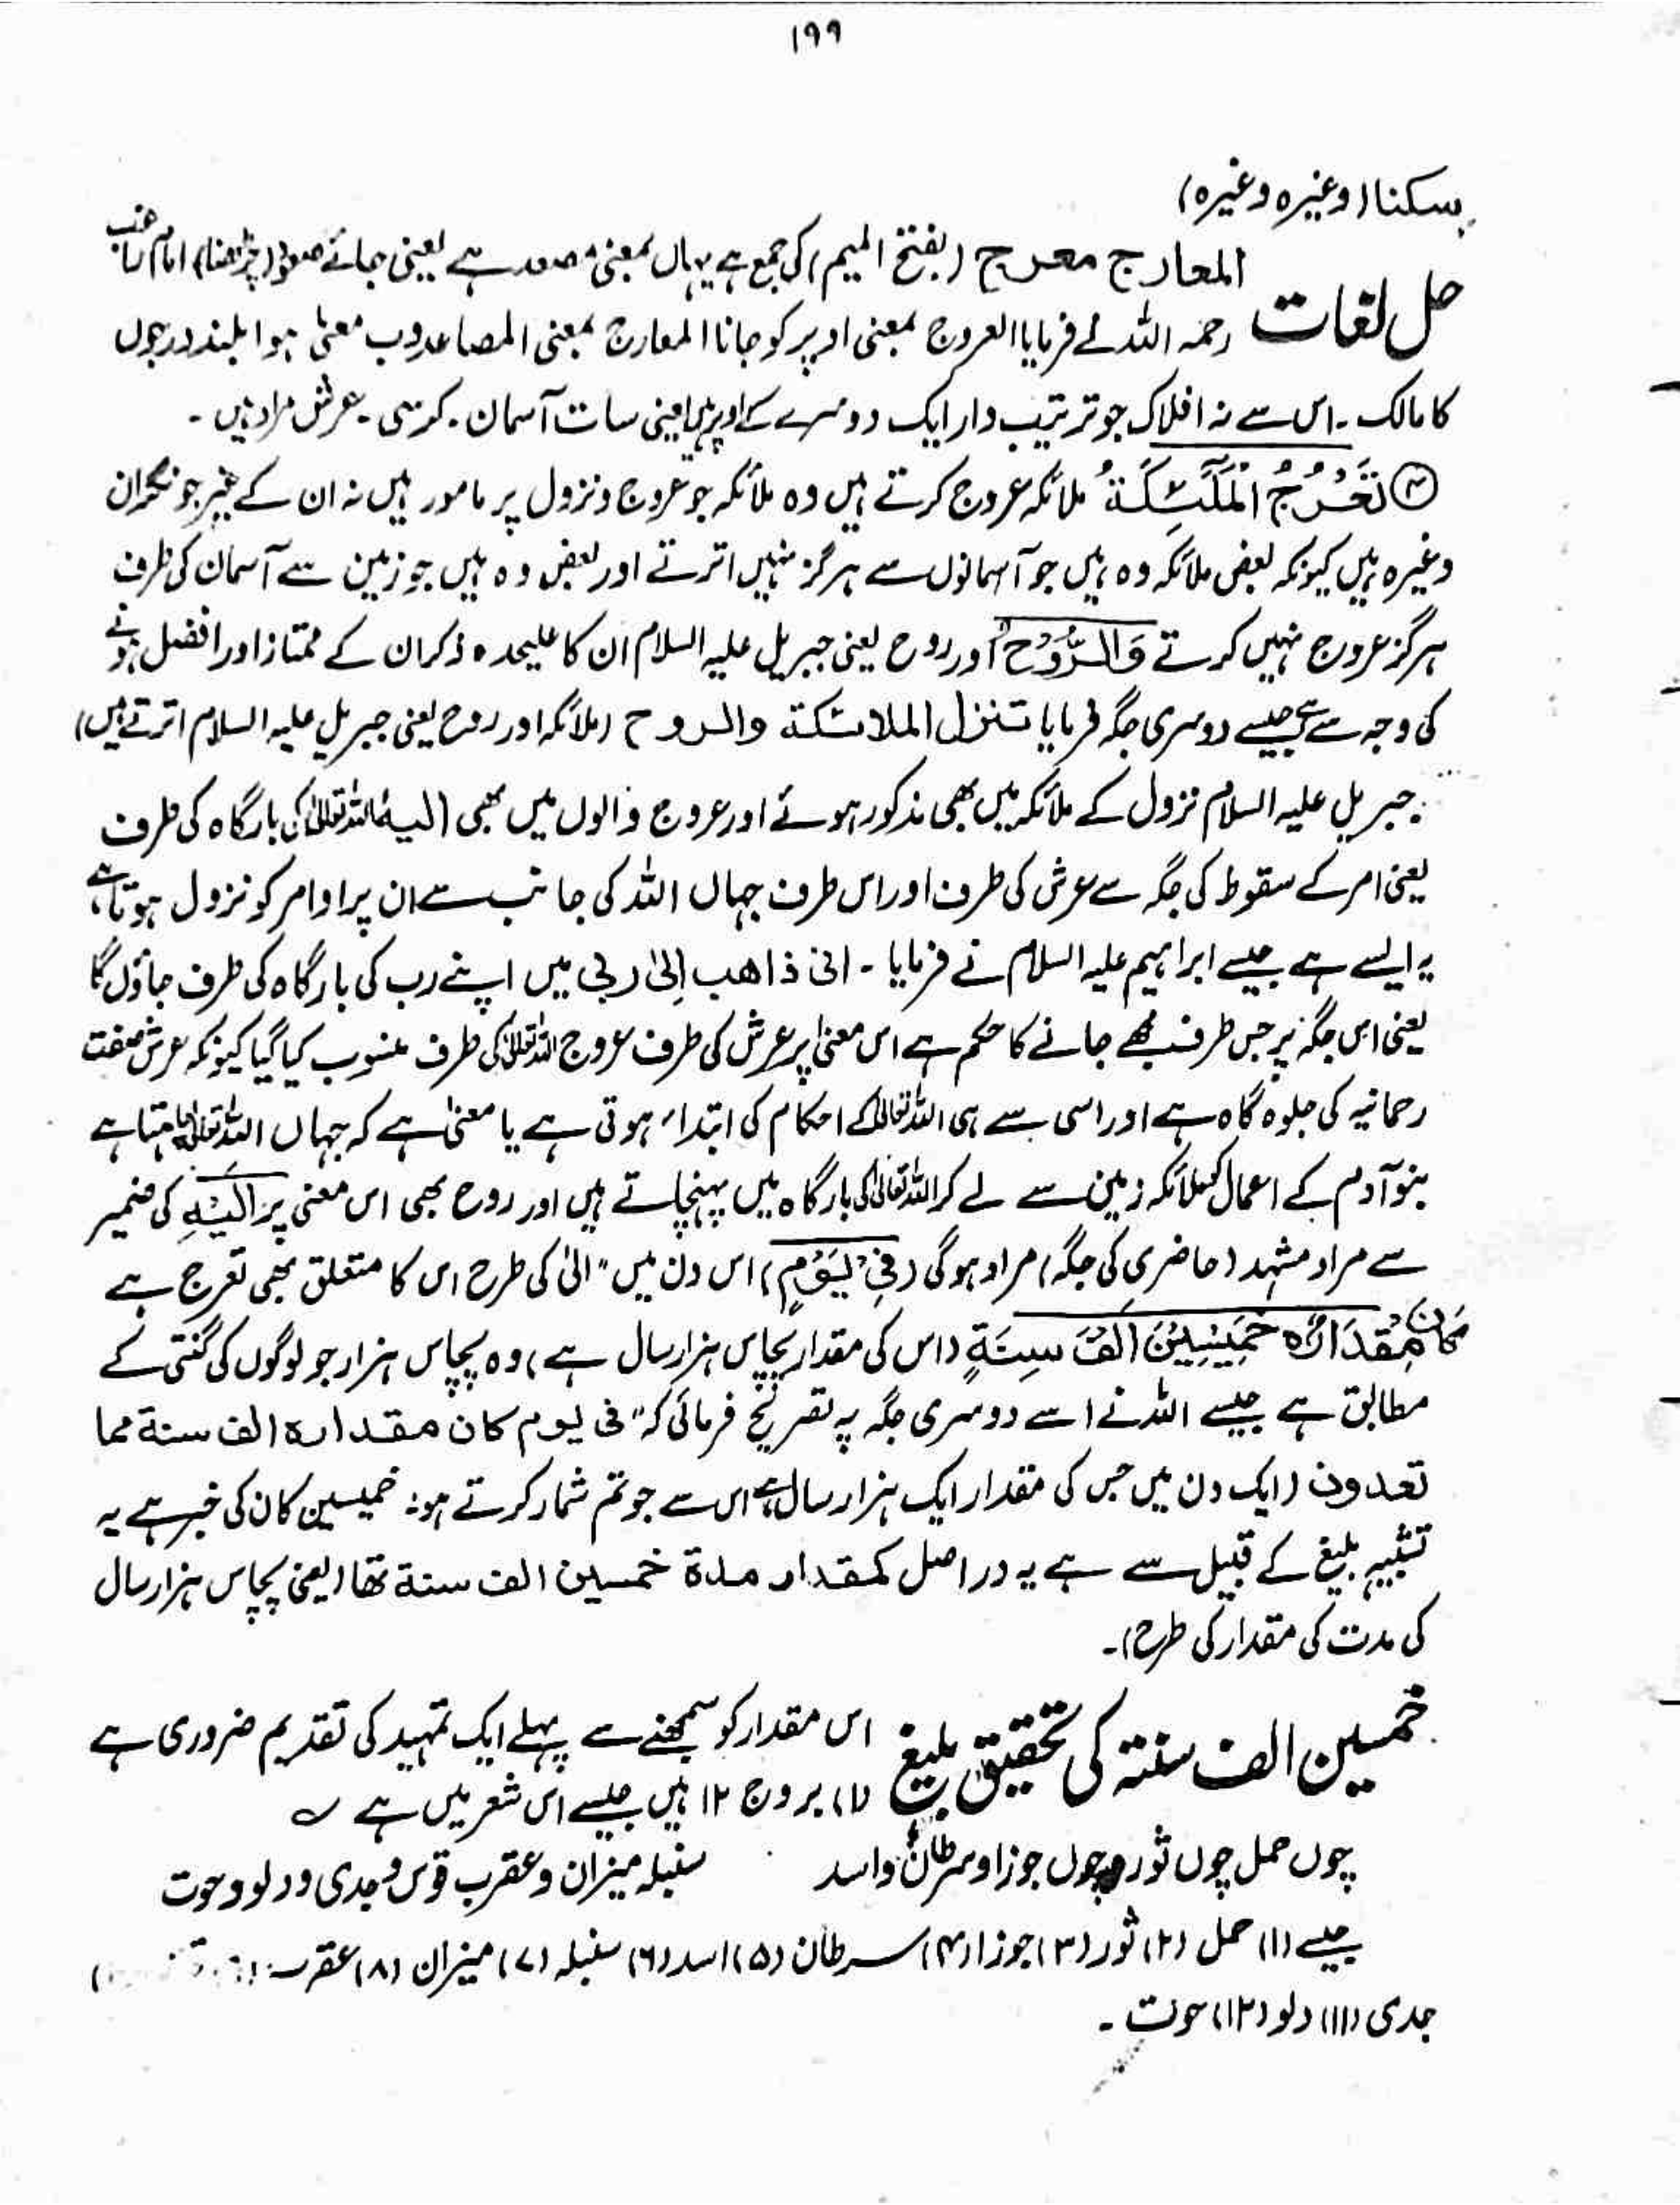 ۱۹۹
سکنا (وغیرہ وغیرہ)
حل لغات المعارج معرج (بفتح المیم) کی جمع ہے یہاں بمعنی مصعد ہے یعنی جائے صعود (چڑھنا) امام راغب
رحمہ اللہ نے فرمایا العروج بمعنی اوپر کو جانا المعارج بمعنی المصاعد وب معنیٰ ہوا بلند درجوں
کا مالک ۔ اس سے نہ افلاک جو ترتیب دار ایک دوسرے کے اوپر ہیں یعنی سات آسمان ۔ کرسی ۔ عرش مراد ہیں ۔
تَعْرُجُ الْمَلٰٓئِكَةُ ملائکہ عروج کرتے ہیں وہ ملائکہ جو عروج و نزول پر مامور ہیں نہ ان کے غیر جو نگران
وغیرہ ہیں کیونکہ بعض ملائکہ وہ ہیں جو آسمانوں سے ہرگز نہیں اترتے اور بعض وہ ہیں جو زمین سے آسمان کی طرف
ہرگز عروج نہیں کرتے وَالرُّوْحُ اور روح یعنی جبریل علیہ السلام ان کا علیحدہ ذکر ان کے ممتاز اور افضل ہونے
کی وجہ سے ہے جیسے دوسری جگہ فرمایا تنزل الملائکة والروح (ملائکہ اور روح یعنی جبریل علیہ السلام اترتے ہیں)
جبریل علیہ السلام نزول کے ملائکہ میں بھی مذکور ہوئے اور عروج والوں میں بھی (الیہ) اللہ تعالیٰ کی بارگاہ کی طرف
یعنی امر کے سقوط کی جگہ سے عرش کی طرف اور اس طرف جہاں اللہ کی جانب سے ان پر اوامر کو نزول ہوتا ہے
یہ ایسے ہے جیسے ابراہیم علیہ السلام نے فرمایا ۔ انی ذاھب اِلیٰ ربی میں اپنے رب کی بارگاہ کی طرف جاؤں گا
یعنی اس جگہ پر جس طرف مجھے جانے کا حکم ہے اس معنیٰ پر عرش کی طرف عروج اللہ تعالیٰ کی طرف منسوب کیا گیا کیونکہ عرش صفت
رحمانیہ کی جلوہ گاہ ہے اور اسی سے ہی اللہ تعالیٰ کے احکام کی ابتداء ہوتی ہے یا معنیٰ ہے کہ جہاں اللہ تعالیٰ چاہتا ہے
بنو آدم کے اعمال کو ملائکہ زمین سے لے کر اللہ تعالیٰ کی بارگاہ میں پہنچاتے ہیں اور روح بھی اس معنی پر اِلَیْہِ کی ضمیر
سے مراد مشہد (حاضری کی جگہ) مراد ہوگی (فِیْ یَوْمٍ) اس دن میں " الیٰ کی طرح اس کا متعلق بھی تعرج ہے
کَانَ مِقْدَارُہٗ خَمْسِیْنَ اَلْفَ سَنَةٍ (اس کی مقدار پچاس ہزار سال ہے) وہ پچاس ہزار جو لوگوں کی گنتی کے
مطابق ہے جیسے اللہ نے اسے دوسری جگہ پہ تصریح فرمائی کہ" فی یوم کان مقدارہ الف سنة مما
تعدون (ایک دن میں جس کی مقدار ایک ہزار سال ہے اس سے جو تم شمار کرتے ہو: خمسین کان کی خبر ہے یہ
تشبیہ بلیغ کے قبیل سے ہے یہ در اصل کمقدار مدة خمسین الف سنة تھا (یعنی پچاس ہزار سال
کی مدت کی مقدار کی طرح) ۔
خمسین الف سنتہ کی تحقیق بلیغ اس مقدار کو سمجھنے سے پہلے ایک تمہید کی تقدیم ضروری ہے
(۱) بروج ۱۲ ہیں جیسے اس شعر میں ہے ؎
چوں حمل چوں ثور وچوں جوزا وسرطان واسد سنبلہ میزان و عقرب قوس وجدی و دلو وحوت
جیسے (۱) حمل (۲) ثور (۳) جوزا (۴) سرطان (۵) اسد (۶) سنبلہ (۷) میزان (۸) عقرب
جدی (۱۱) دلو (۱۲) حوت ۔